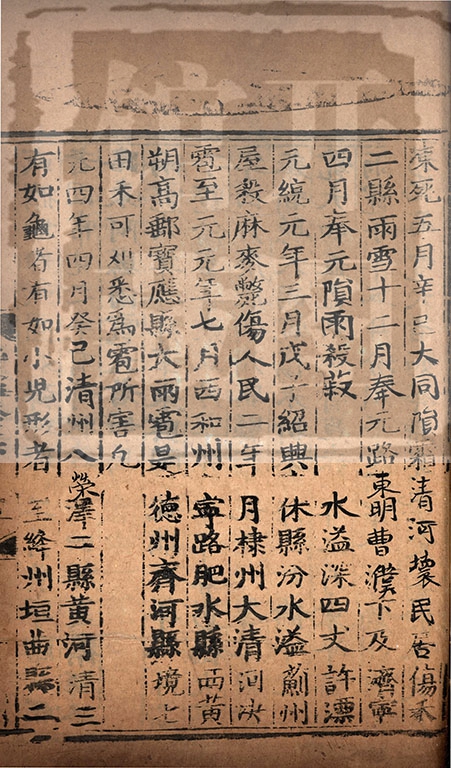 凍死五月辛巳大同隕霜清河壞民居傷禾
二縣雨雪十二月奉元路東明曹濮下及濟寧
四月奉元隕雨殺菽水溢深四丈許漂
元統元年三月戊子紹興休縣汾水溢薊州
屋殺麻麥斃傷人民二年月棣州大清河決
雹至元元年七月西和州寧路肥水縣西黃
朔高郵寶應縣大雨雹是德州齊河縣境七
田禾可刈悉爲雹所害凡
元四年四月癸巳清州八滎澤二縣黃河清三
有如龜者有如小兒形者至絳州垣曲縣二